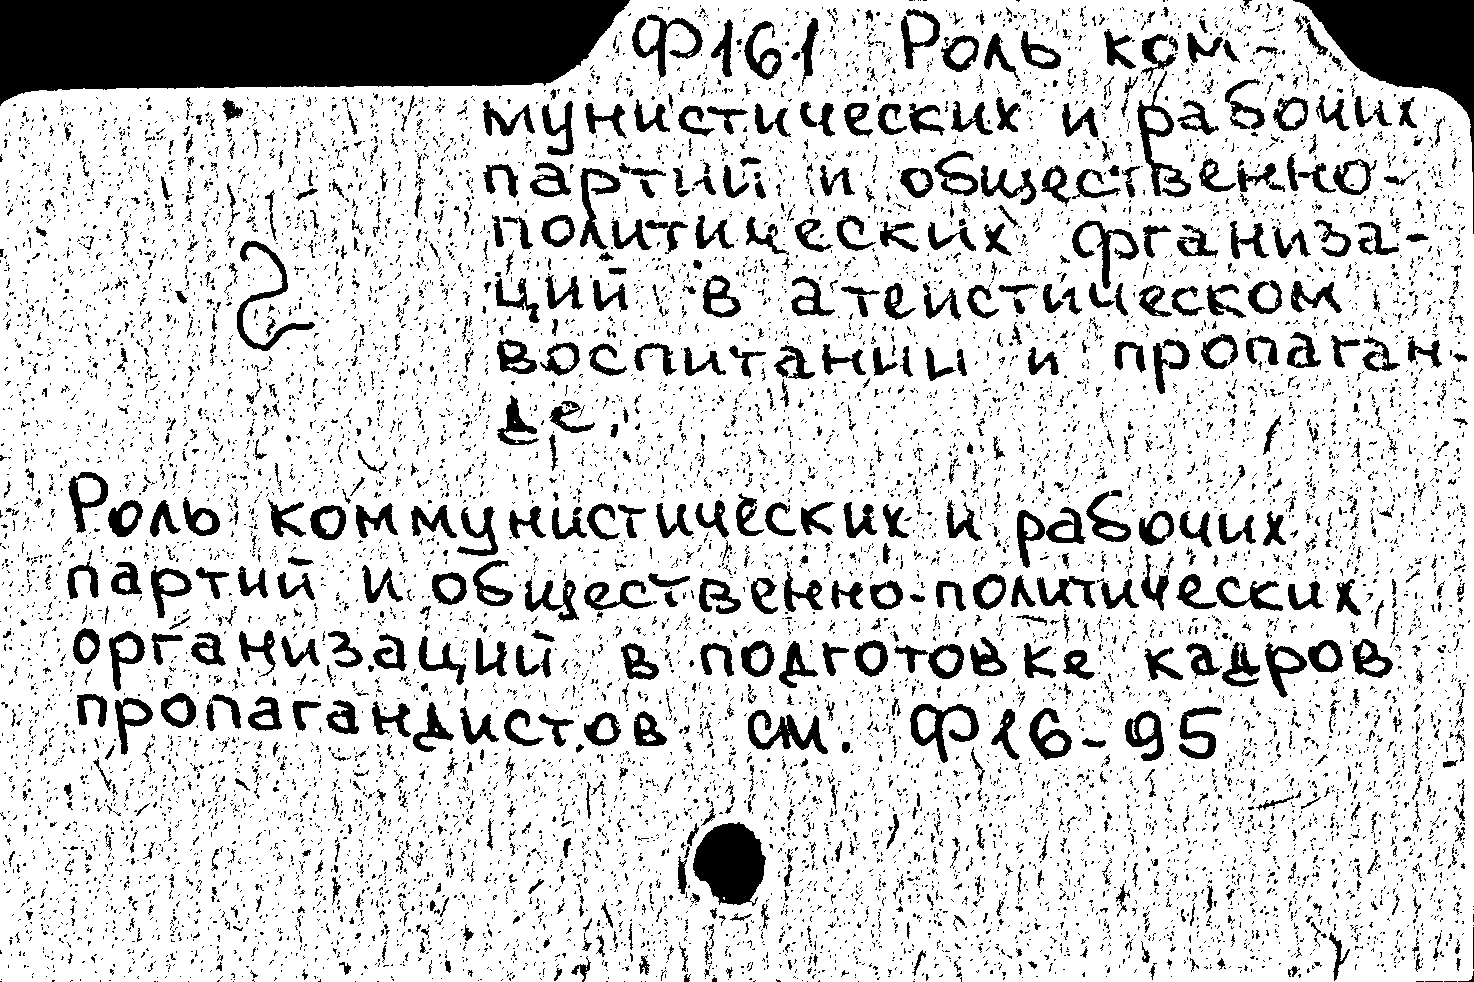 Ф161 Роль ком-
мунистических и рабочих
партий и общественно-
политических организа-
ций в атеистическом
воспитании и пропаган-
де.
2
Роль коммунистических и рабочих
партий и общественно-политических
организаций в подготовке кадров
пропагандистов см. Ф16-95